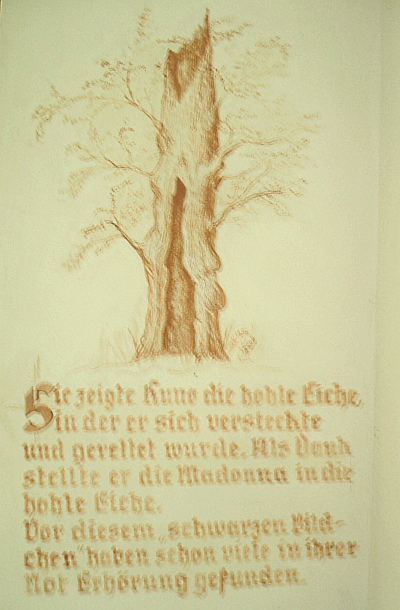 Sie zeigte Kuno die hohle Eiche,
in der er sich versteckte
und gerettet wurde. Als Dank
stellte er die Madonna in die
hohle Eiche.
Vor diesem „schwarzen Bild-
chen" haben schon viele in ihrer
Not Erhörung gefunden.